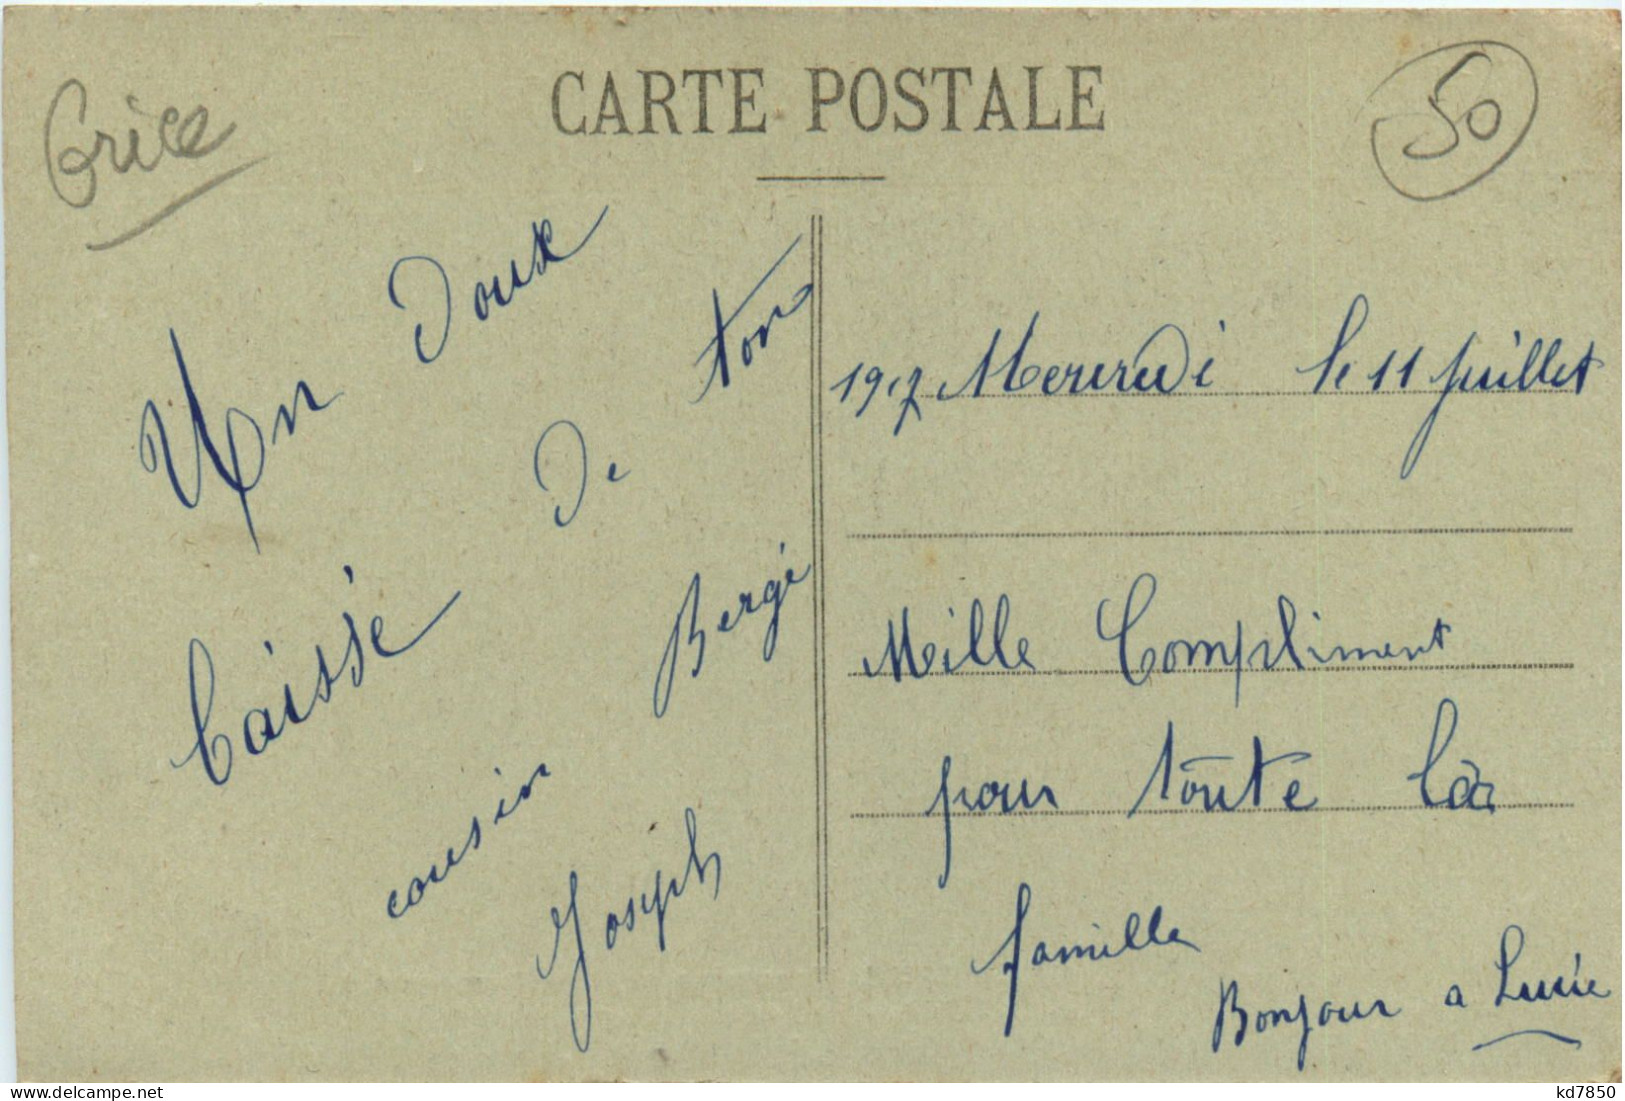 CARTE POSTALE
Grice
50
Un Doux
Caissé De ton
cousin Bergé
Joseph
1917 Mercredi le 11 Juillet
Mille Compliment
pour toute la
famille
Bonjour a Lucie
kd7850